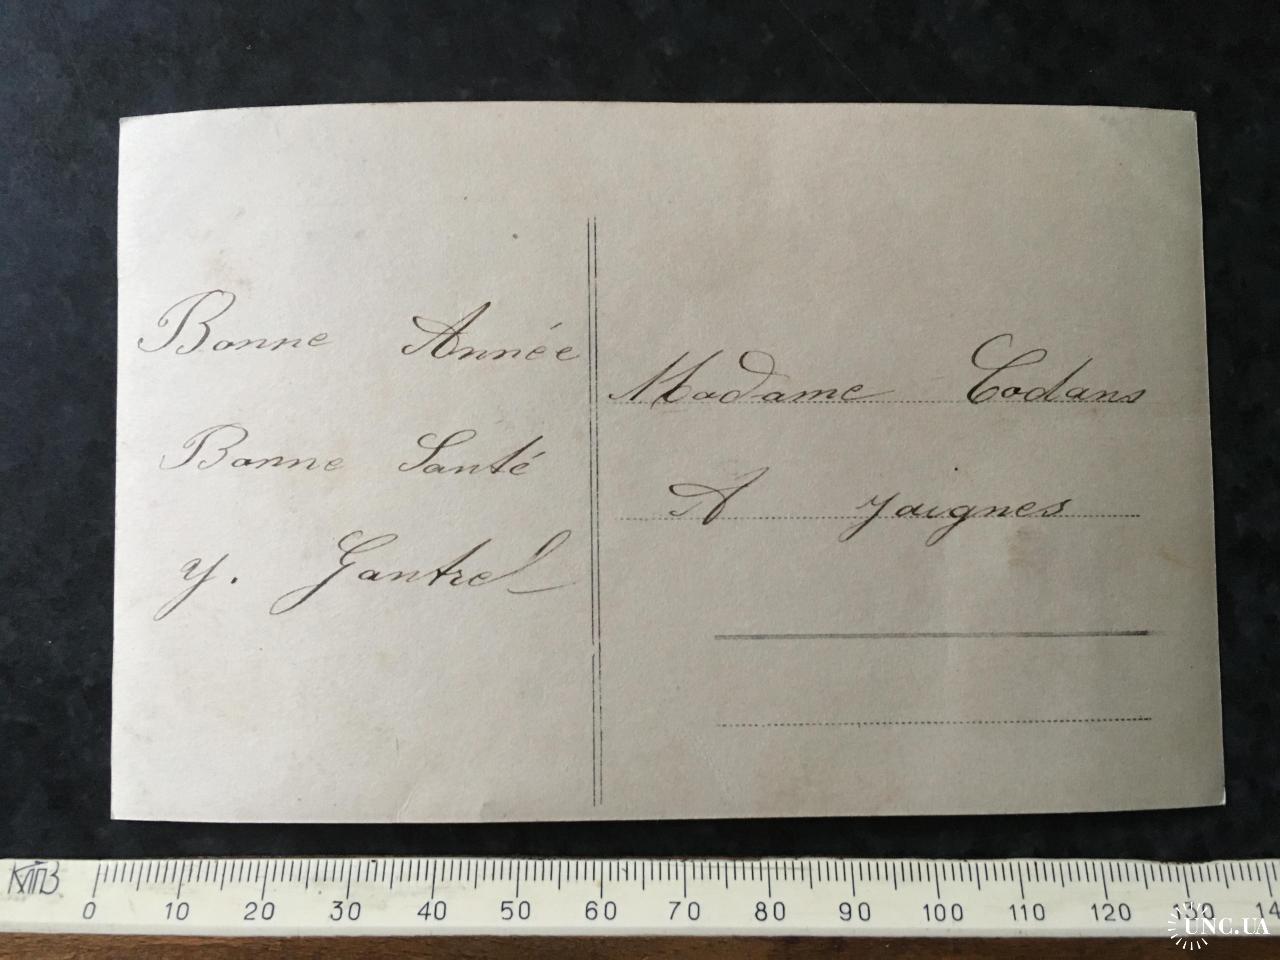 Bonne Année
Bonne Santé
Y. Gantrel
Madame Codans
A Jaignes
КПЗ
0 10 20 30 40 50 60 70 80 90 100 110 120 130 14
UNC.UA